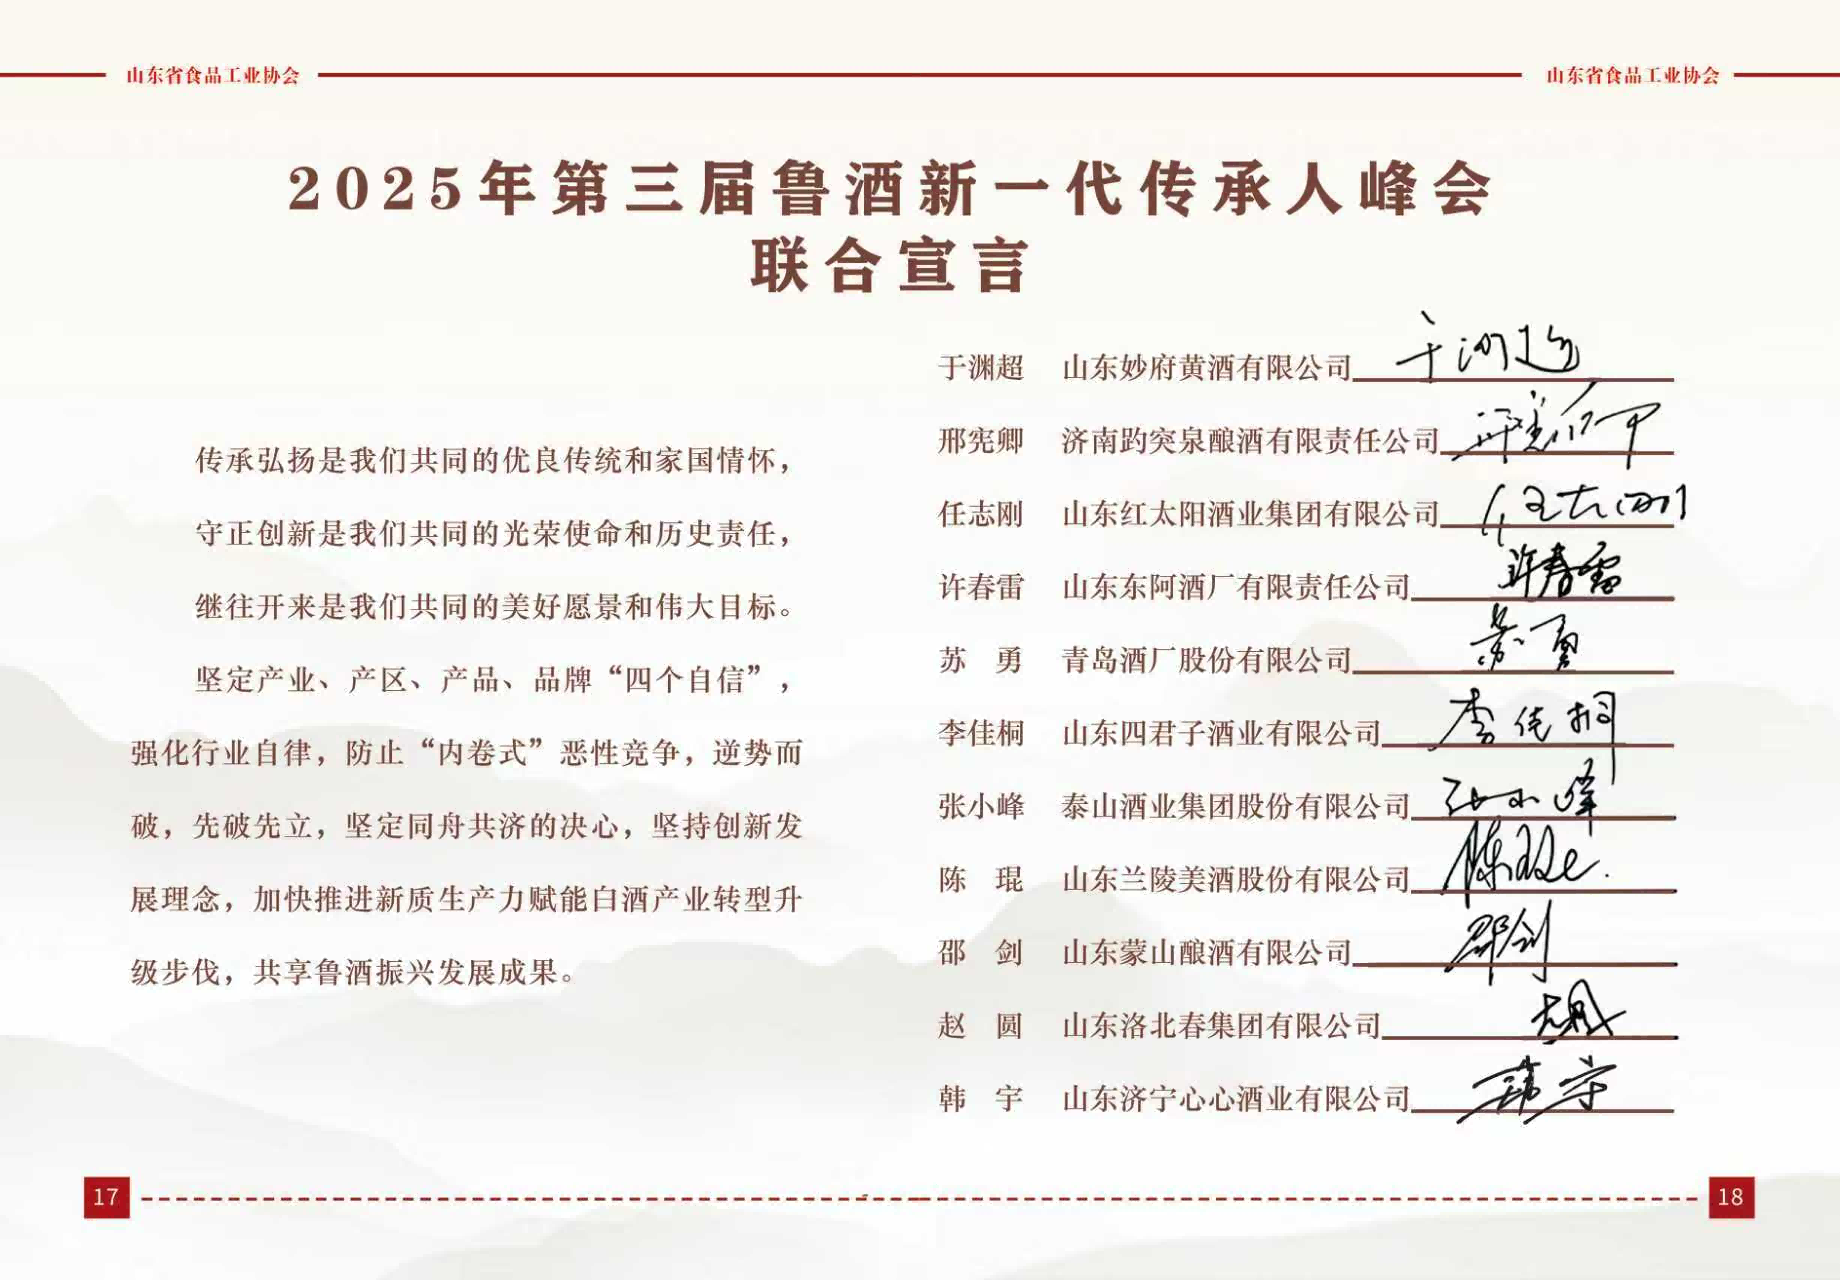 山东省食品工业协会
山东省食品工业协会
2025年第三届鲁酒新一代传承人峰会
联合宣言
传承弘扬是我们共同的优良传统和家国情怀，
守正创新是我们共同的光荣使命和历史责任，
继往开来是我们共同的美好愿景和伟大目标。
坚定产业、产区、产品、品牌“四个自信”，
强化行业自律，防止“内卷式”恶性竞争，逆势而
破，先破先立，坚定同舟共济的决心，坚持创新发
展理念，加快推进新质生产力赋能白酒产业转型升
级步伐，共享鲁酒振兴发展成果。
于渊超 山东妙府黄酒有限公司
邢宪卿 济南趵突泉酿酒有限责任公司
任志刚 山东红太阳酒业集团有限公司 任志刚
许春雷 山东东阿酒厂有限责任公司 许春雷
苏 勇 青岛酒厂股份有限公司
李佳桐 山东四君子酒业有限公司 李佳桐
张小峰 泰山酒业集团股份有限公司 张小峰
陈 琨 山东兰陵美酒股份有限公司 陈琨
邵 剑 山东蒙山酿酒有限公司 邵剑
赵 圆 山东洛北春集团有限公司
韩 宇 山东济宁心心酒业有限公司 韩宇
17
18